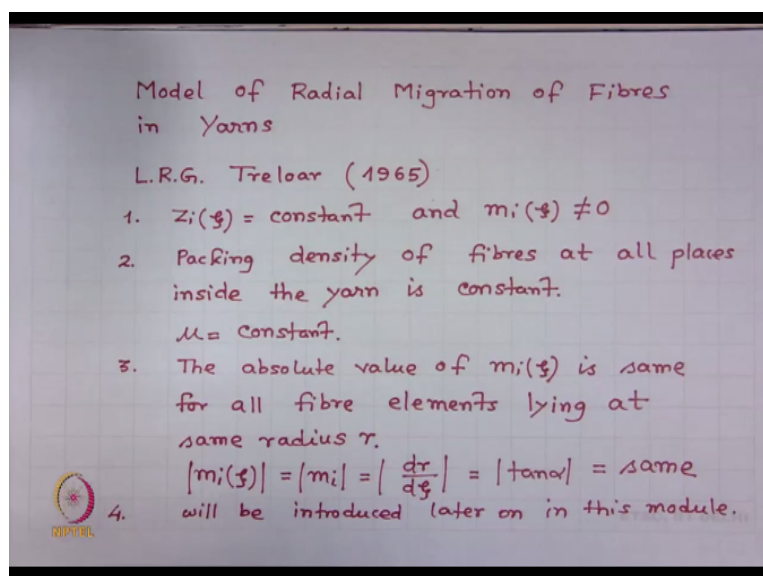 Model of Radial Migration of Fibres
in Yarns
L.R.G. Treloar (1965)
1. Zi(ξ) = constant and mi(ξ) ≠0
2. Packing density of fibres at all places
inside the yarn is constant.
μ= constant.
3. The absolute value of mi(ξ) is same
for all fibre elements lying at
same radius r.
|mi(ξ)| = |mi| = |dr/dξ| = |tanα| = same
4. will be introduced later on in this module.
NPTEL